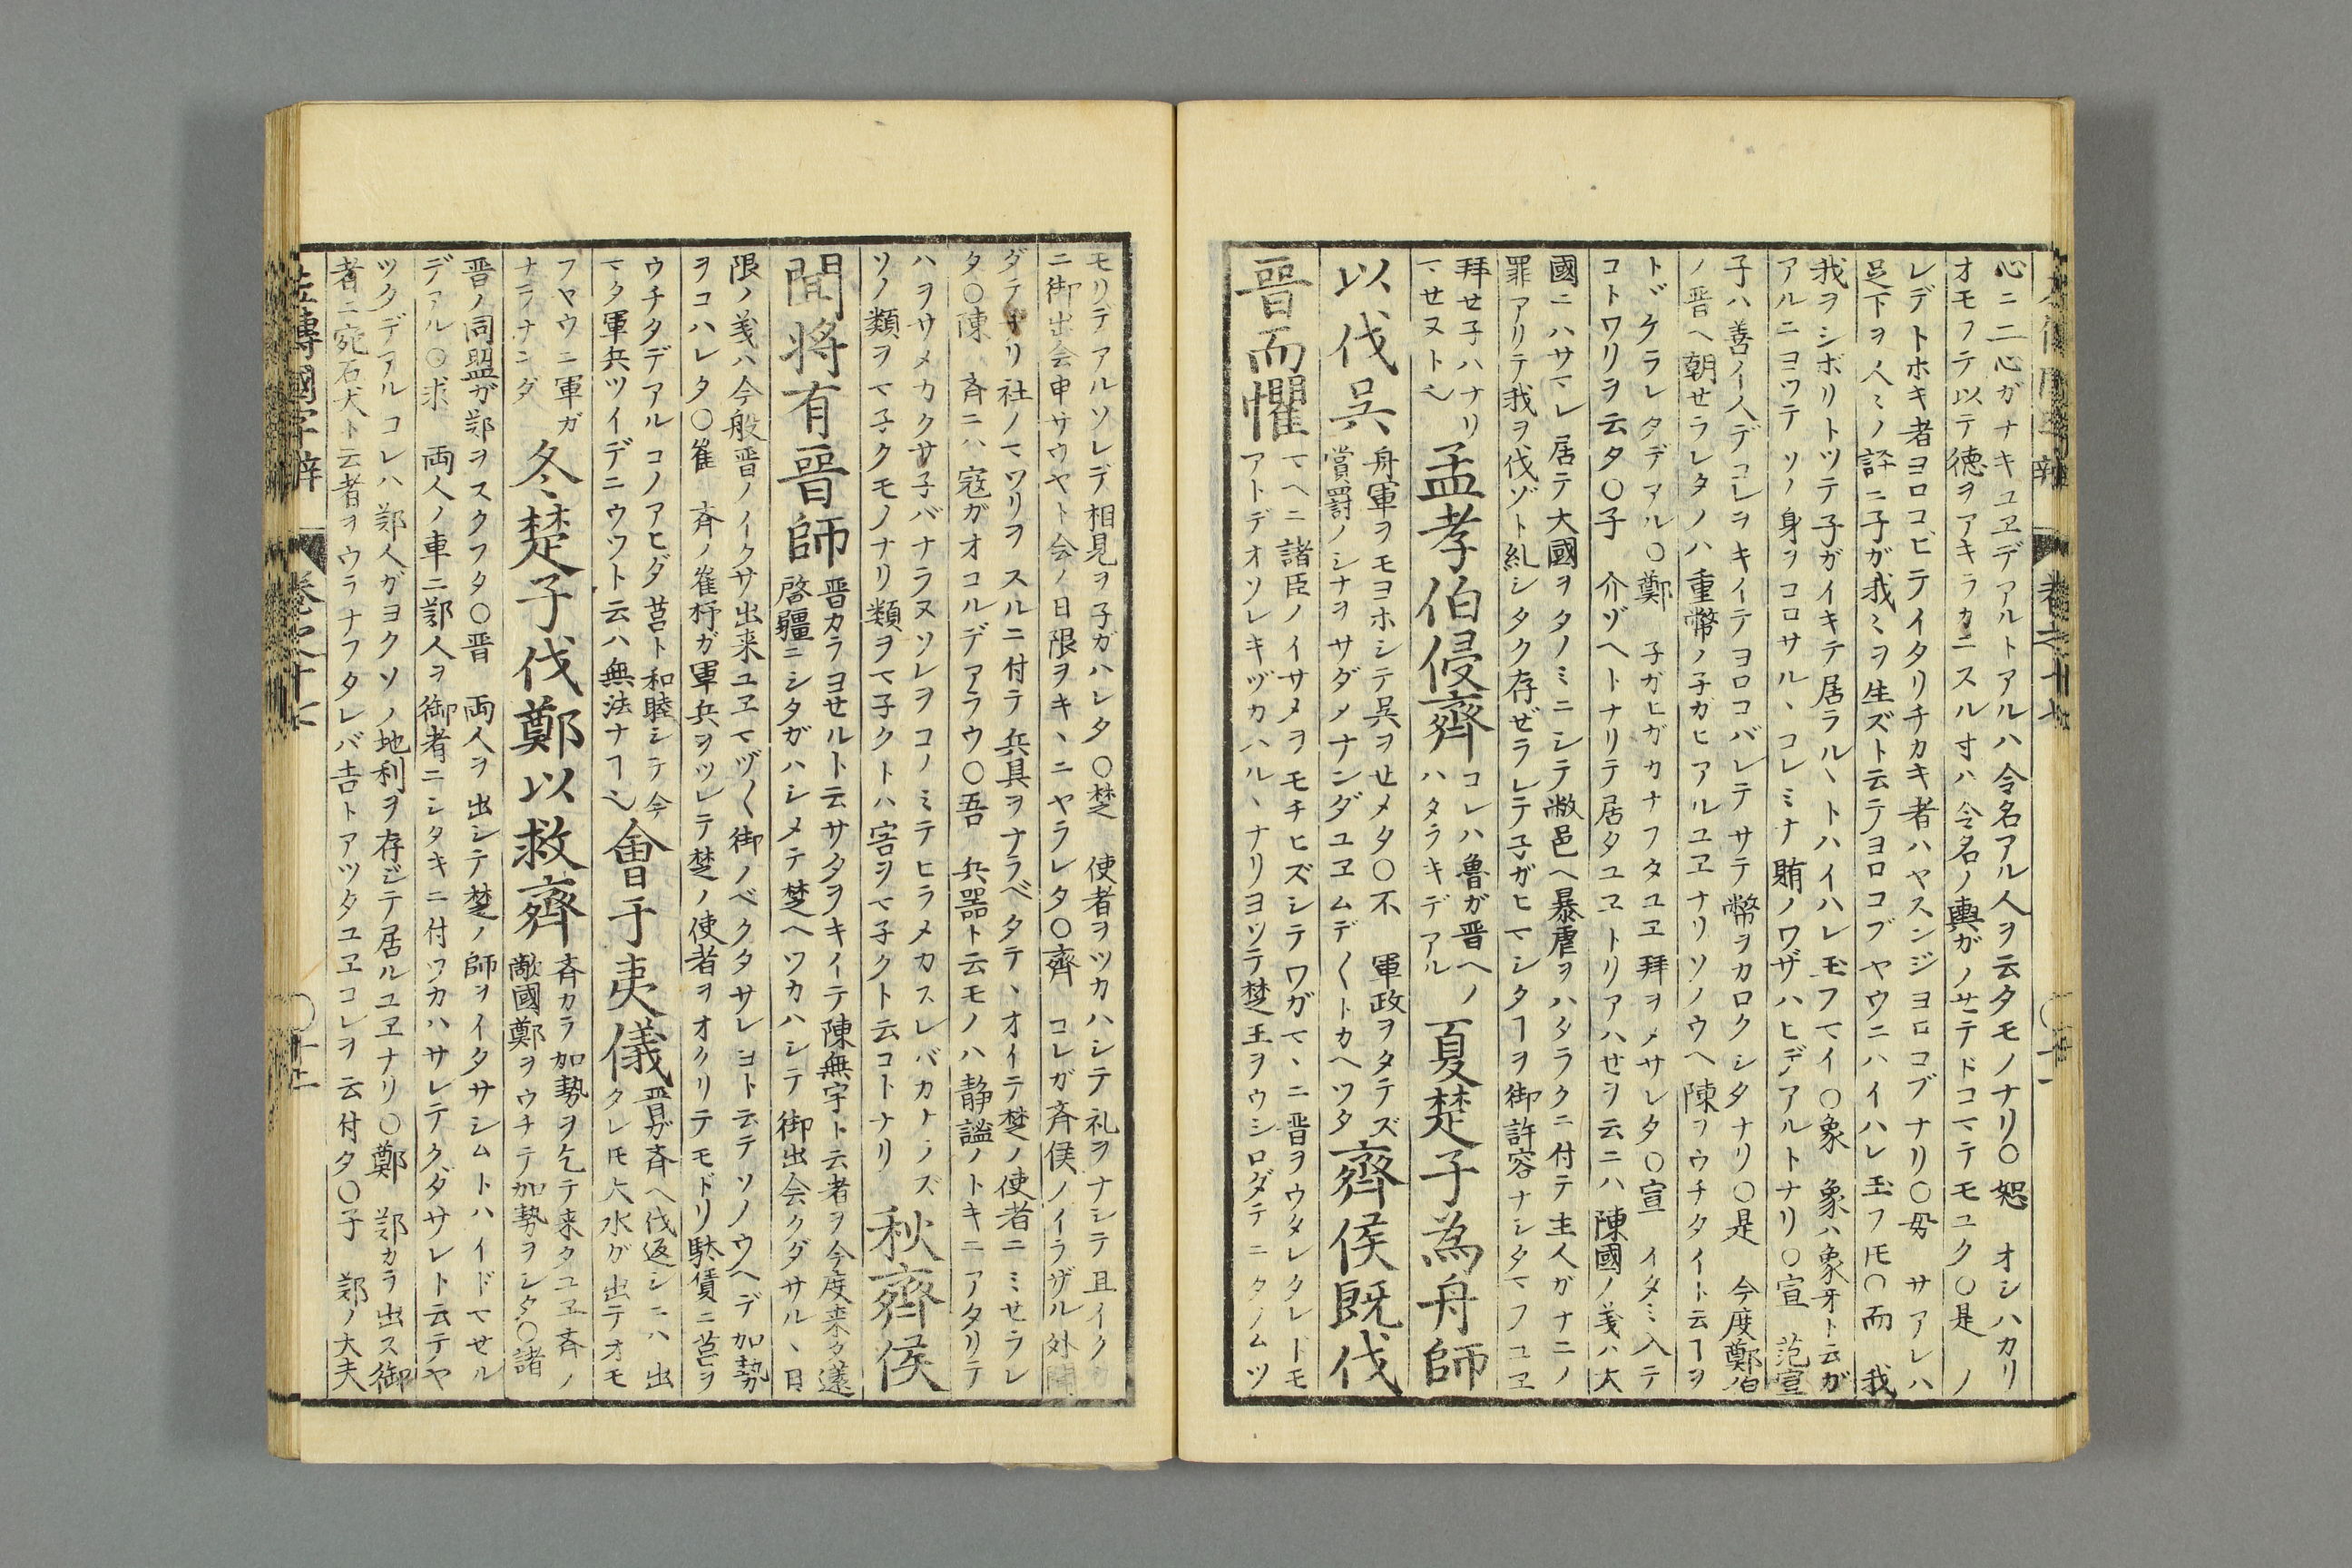 心ニ二心ガナキユヱデアルトアルハ令名アル人ヲ云タモノナリ〇恕 オシハカリ
オモフテ以テ徳ヲアキラカニスル寸ハ令名ノ輿ガノセテドコマテモユク〇是 ノ
レデトホキ者ヨロコビテイタリチカキ者ハヤスンジヨロコブナリ〇毋 サアレハ
足下ヲ人〻ノ評ニ子ガ我〻ヲ生ズト云テヨロコブヤウニハイハレ玉フ𪜈〇而 我
我ヲシボリトツテ子ガイキテ居ラルヽトハイハレ玉フマイ〇象 象ハ象牙ト云ガ
アルニヨツテソノ身ヲコロサルヽコレミナ賄ノワザハヒデアルトナリ〇宣 范宣
子ハ善ノイ人デコレヲキイテヨロコバレテサテ幣ヲカロクシタナリ〇是 今度鄭伯
ノ晋ヘ朝セラレタノハ重幣ノ子ガヒアルユヱナリソノウヘ陳ヲウチタイト云ヿヲ
トヾケラレタデアル〇鄭 子ガヒガカナフタユヱ拜ヲメサレタ〇宣 イタミ入テ
コトワリヲ云タ〇子 介ヅヘトナリテ居タユヱトリアハセヲ云ニハ陳國ノ義ハ大
國ニハサマレ居テ大國ヲタノミニシテ敝邑ヘ暴虐ヲハタラクニ付テ主人ガナニノ
罪アリテ我ヲ伐ゾト糺シタク存ゼラレテ子ガヒマシタヿヲ御許容ナシタマフユヱ
拜セ子ハナリ
マセヌト也
孟孝伯侵齊
コレハ魯ガ晋ヘノ
ハタラキデアル
夏楚子為舟師
以伐吳
舟軍ヲモヨホシテ吳ヲせメタ〇不 軍政ヲタテズ
賞罰ノシナヲサダメナンダユヱムデ〱トカヘツタ
齊侯既伐
晉而懼
マヘニ諸臣ノイサメヲモチヒズシテワガマヽニ晋ヲウタレタレドモ
アトデオソレキヅカハルヽナリヨツテ楚王ヲウシロダテニタノムツ
モリテアルソレデ相見ヲ子ガハレタ〇楚 使者ヲツカハシテ礼ヲナシテ且イク
ニ御出会申サウヤト会ノ日限ヲキヽニヤラレタ〇齊 コレガ斉侯ノイラザル外
ダテナリ社ノマツリヲスルニ付テ兵具ヲナラベタテヽオイテ楚ノ使者ニミセラレ
タ〇陳 斉ニハ寇ガオコルデアラウ〇吾 兵器ト云モノハ静謐ノトキニアタリテ
ハヲサメカクサ子バナラヌソレヲコノミテヒラメカスレバカナラズ
ソノ類ヲマ子クモノナリ類ヲマ子クトハ害ヲマ子クト云コトナリ
秋齊侯
聞将有晉師
晋カラヨせルト云サタヲキイテ陳無宇ト云者ヲ今度来タ薳
啓疆ニシタガハシメテ楚ヘツカハシテ御出会クダサルヽ日
限ノ義ハ今般晋ノイクサ出来ユヱマヅ〱御ノベクタサレヨト云テソノウヘデ加勢
ヲコハレタ〇崔 斉ノ崔杼ガ軍兵ヲツレテ楚ノ使者ヲオクリテモドリ駄賃ニ莒ヲ
ウチタデアルコノアヒダ莒ト和睦シテ今
マタ軍兵ツイデニウツト云ハ無法ナヿ也
會于夷儀
晋ガ斉ヘ伐返シニハ出
タレ𪜈大水ガ出テオモ
フヤウニ軍ガ
ナラナンダ
冬楚子伐鄭以救齊
斉カラ加勢ヲ乞テ来タユヱ斉ノ
敵國鄭ヲウチテ加勢ヲシタ〇諸
晋ノ同盟ガ鄭ヲスクフタ〇晋 両人ヲ出シテ楚ノ師ヲイタサシムトハイドマせル
デアル〇求 両人ノ車ニ鄭人ヲ御者ニシタキニ付ツカハサレテクダサレト云テヤ
ツタデアルコレハ鄭人ガヨクソノ地利ヲ存ジテ居ルユヱナリ〇鄭 鄭カラ出ス御
者ニ宛石犬ト云者ヲウラナフタレバ吉トアツタユヱコレヲ云付タ〇子 鄭ノ大夫
左傳國字辯 巻之十七 〇十二